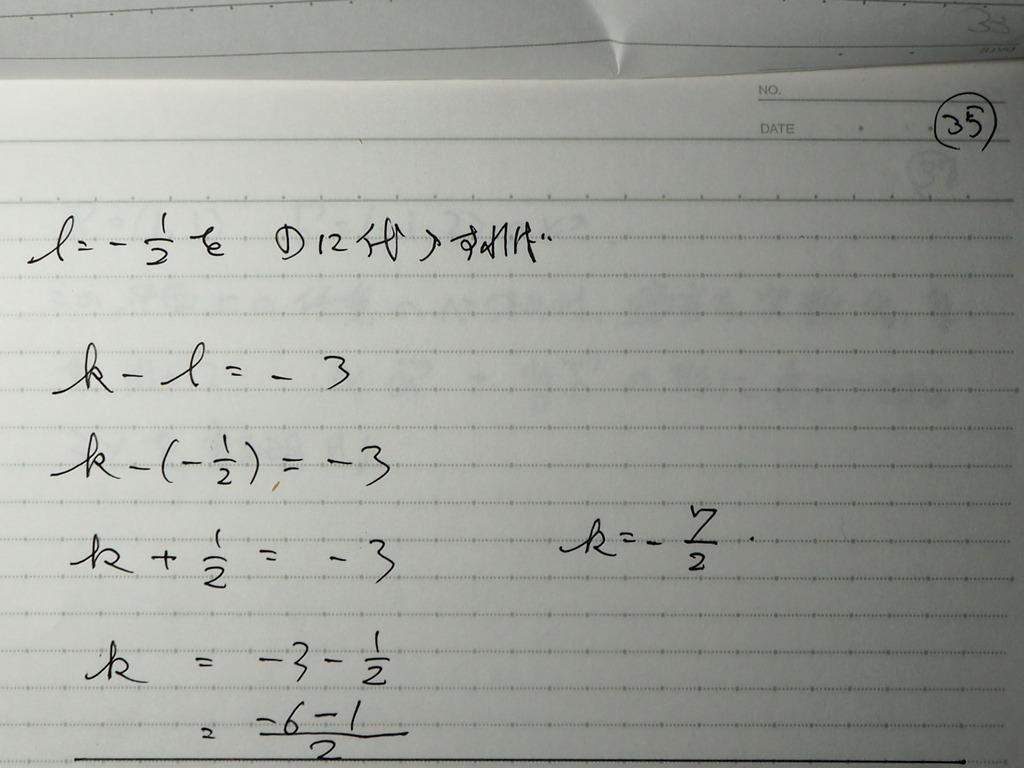 NO.
DATE
㉟
l = - 1/2 を ①に代入すれば
k - l = - 3
k - (- 1/2) = - 3
k + 1/2 = - 3
k = - 7/2 .
k = - 3 - 1/2
= (-6 - 1)/2